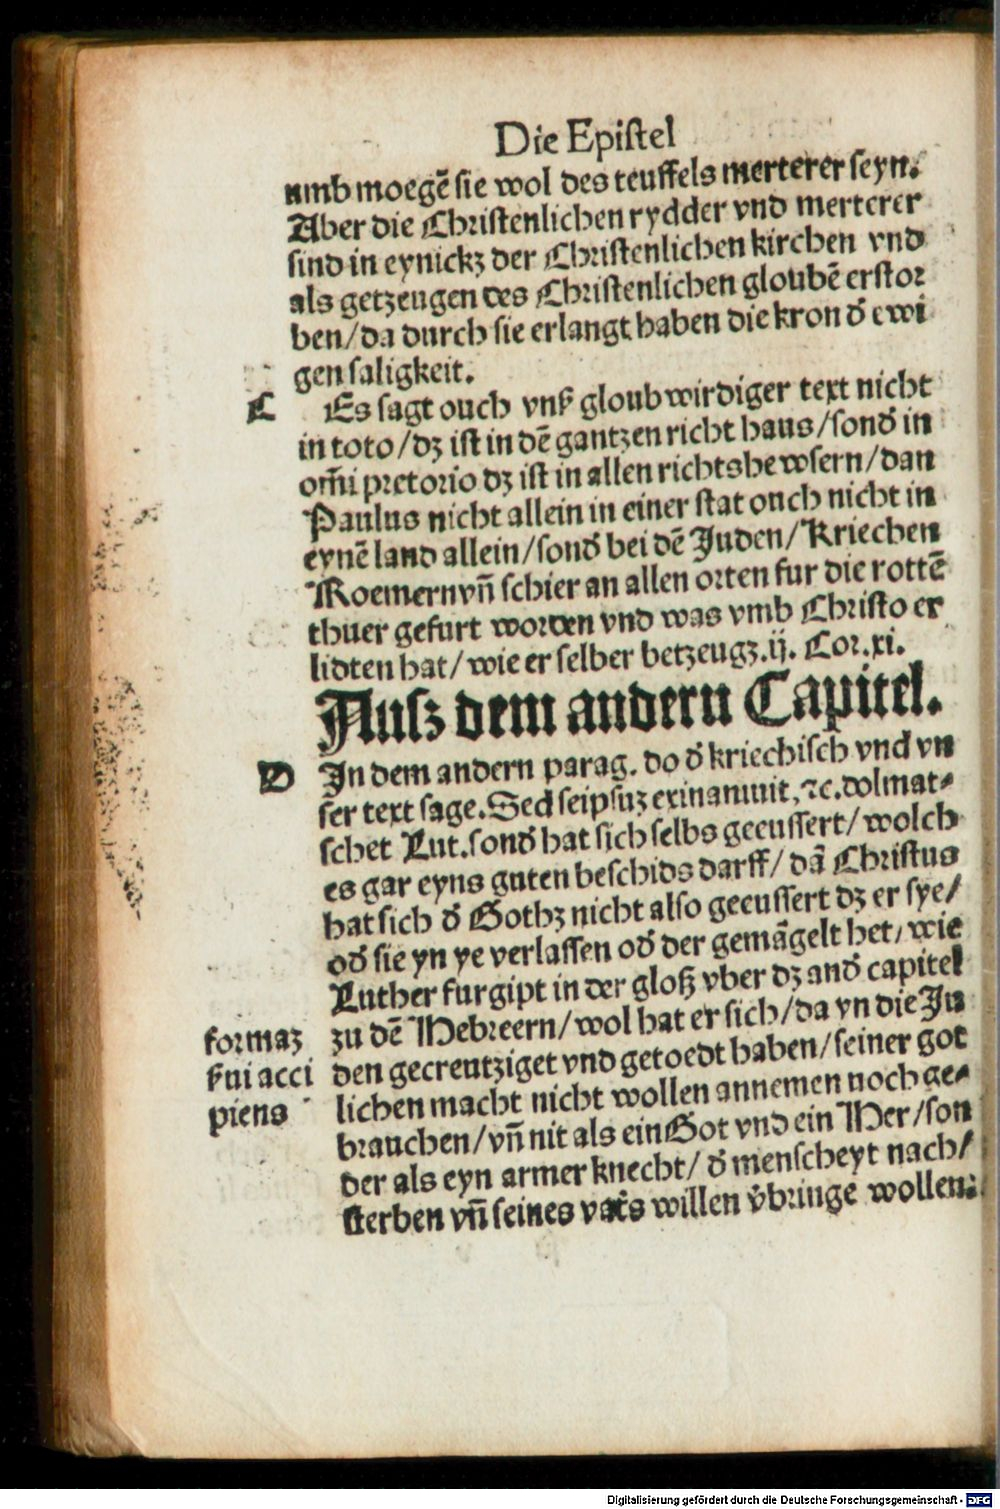 Die Epistel
umb moegē sie wol des teuffels merterer seyn.
Aber die Christenlichen rydder vnd merterer
sind in eynickz der Christenlichen kirchen vnd
als getzeugen des Christenlichen gloubē erstor
ben/da durch sie erlangt haben die kron d̕ ewi
gen saligkeit.
C Es sagt ouch vnß gloubwirdiger text nicht
in toto/dz ist in dē gantzen richt haus/sond̕ in
om̄i pretorio dz ist in allen richtshewsern/dan
Paulus nicht allein in einer stat ouch nicht in
eynē land allein/sond̕ bei dē Juden/Kriechen
Roemern vn̄ schier an allen orten fur die rottē
thuer gefurt worden vnd was vmb Christo er
lidten hat/wie er selber betzeugz.ij. Cor.xi.
Ausz dem andern Capitel.
D In dem andern parag. do d̕ kriechisch vnd vn
ser text sage. Sed seipsuz exinaniuit,⁊c.dolmat-
schet Lut.sond̕ hat sich selbs geeussert/wolch
es gar eyns guten beschids darff/dā Christus
hat sich d̕ Gothz nicht also geeussert dz er sye/
od̕ sie yn ye verlassen od̕ der gemāgelt het/wie
Luther furgipt in der gloß vber dz and̕ capitel
zu dē Hebreern/wol hat er sich/da yn die Ju
formaz
ßui acci
piens
den gecreutziget vnd getoedt haben/seiner got
lichen macht nicht wollen annemen noch ge-
brauchen/vn̄ nit als ein Got vnd ein Her/son
der als eyn armer knecht/d̕ menscheyt nach/
sterben vn̄ seines vat̕s willen v̕bringe wollen:
Digitalisierung gefördert durch die Deutsche Forschungsgemeinschaft - DFG